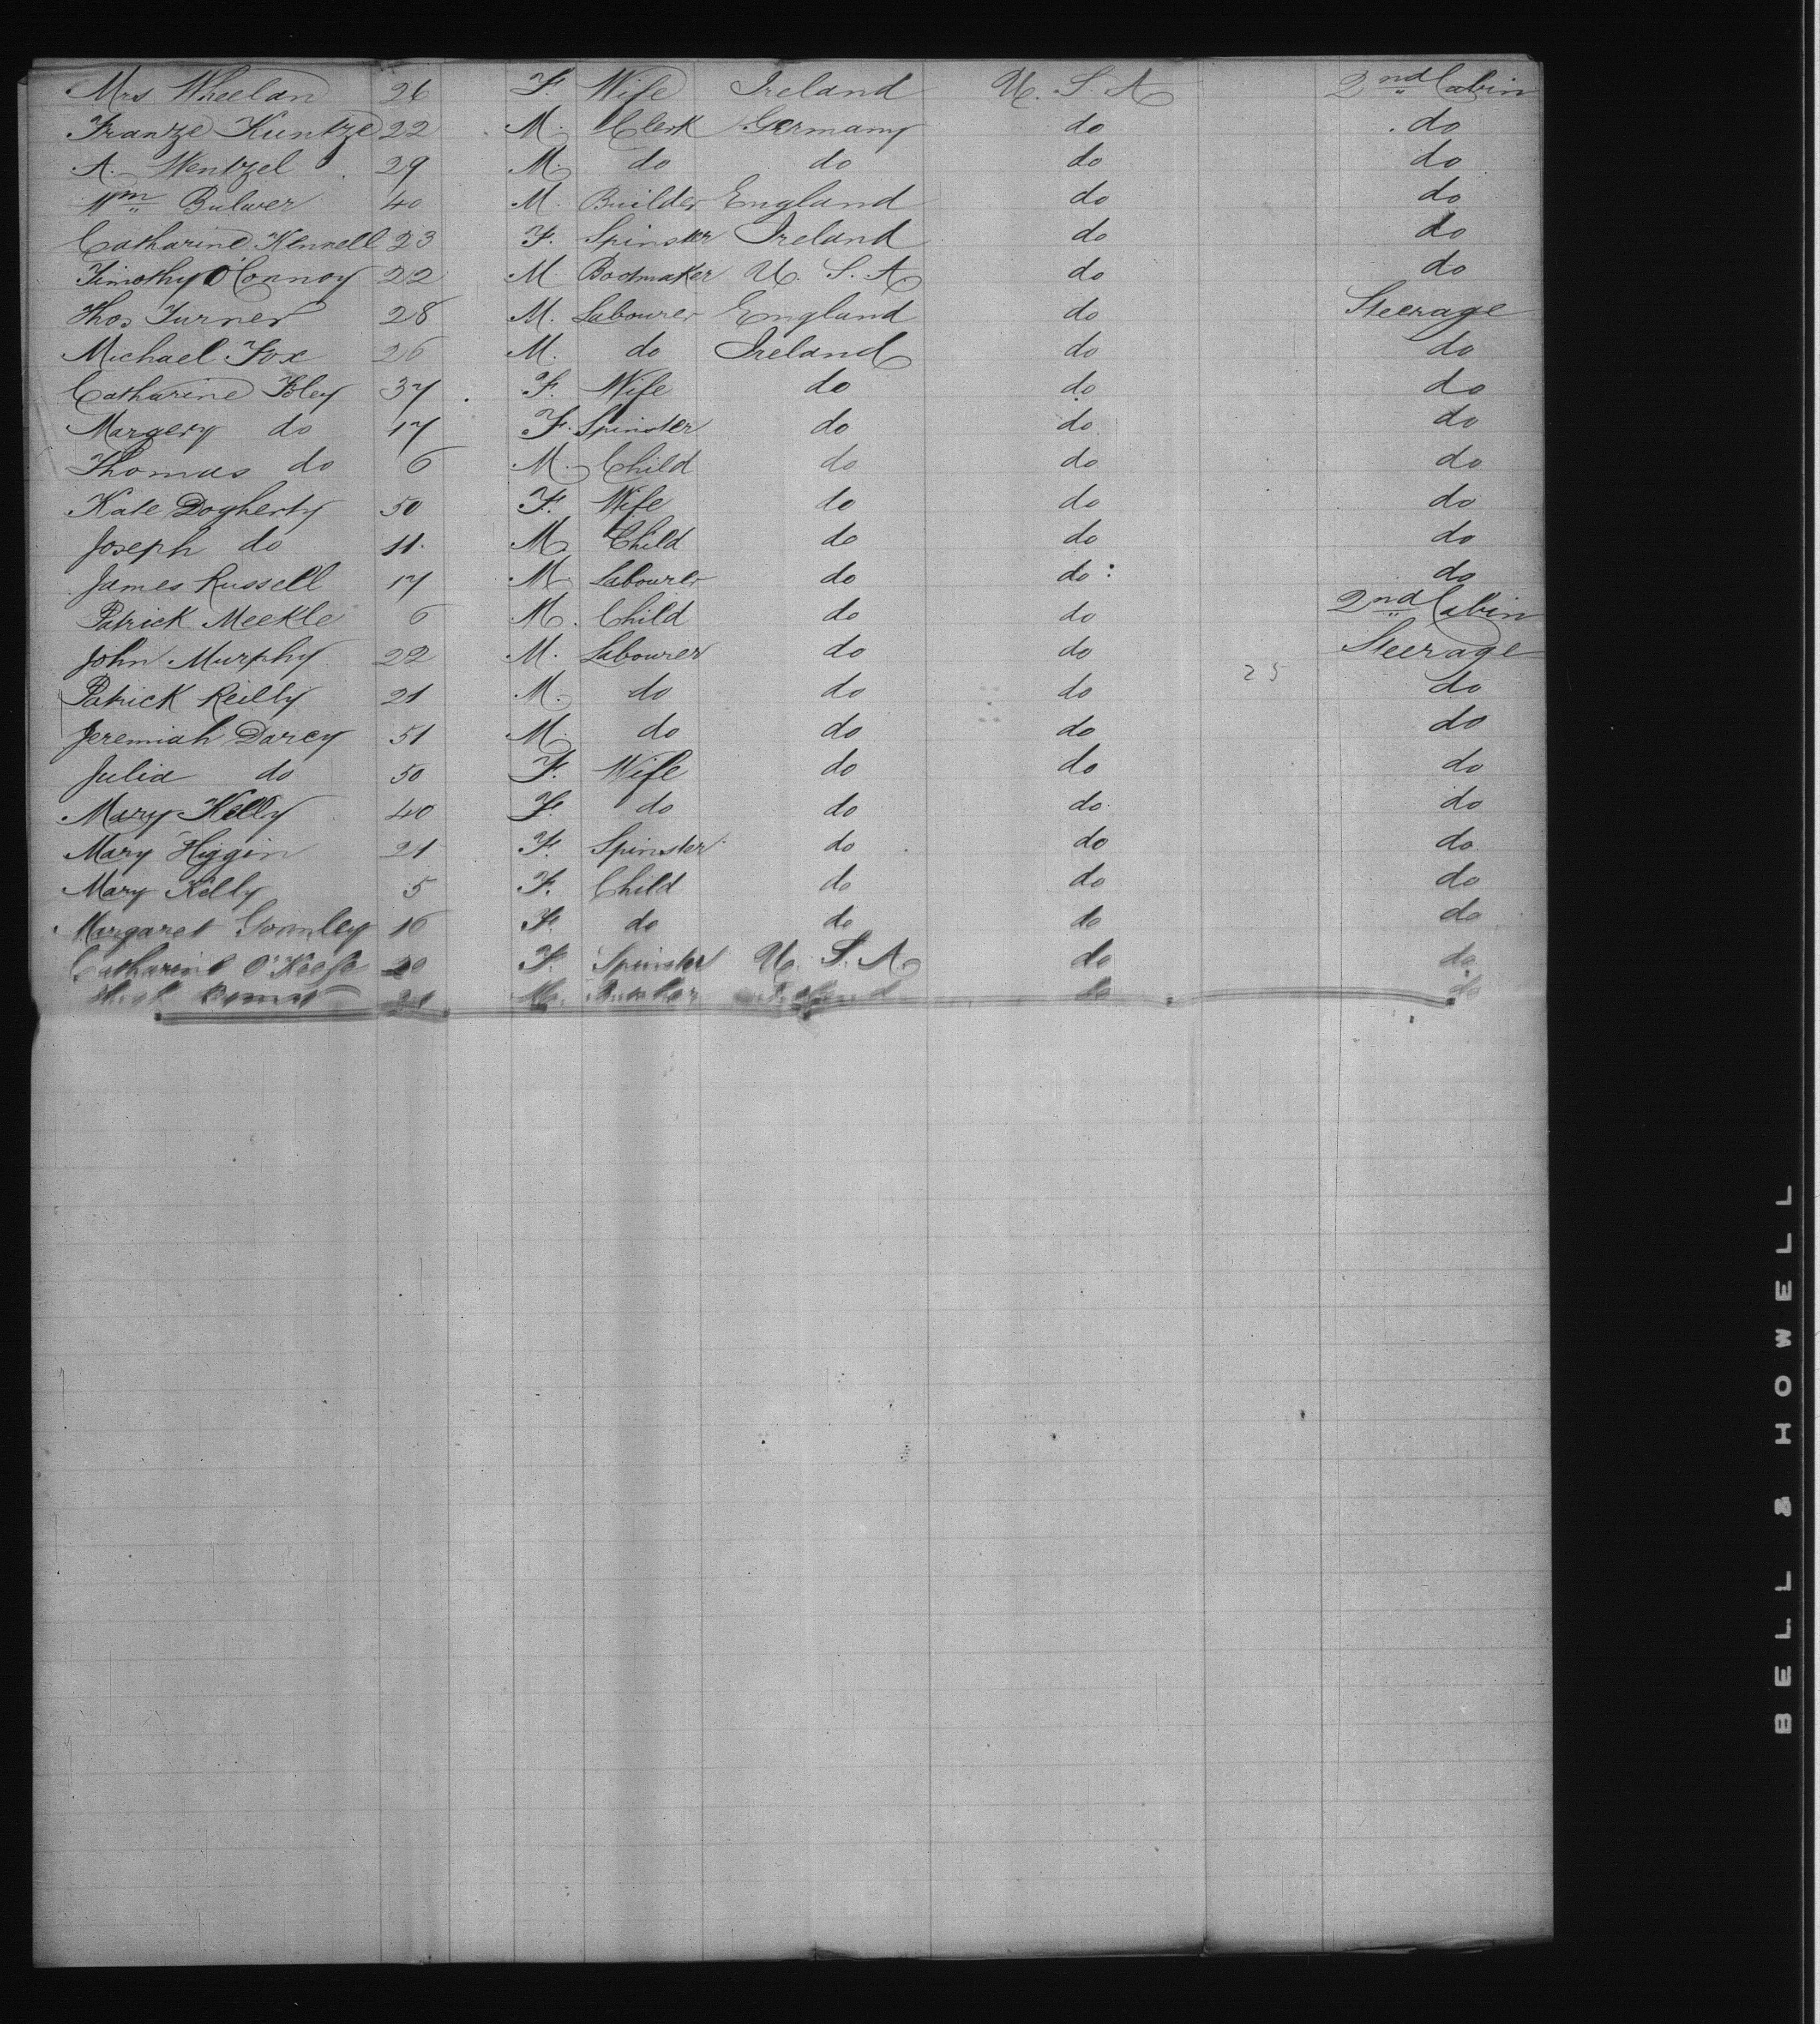 Mrs Wheelan 26 F. Wife Ireland U. S. A 2nd Cabin
Frantze Kuntze 22 M. Clerk Germany do do
A. Wentzel 29 M. do do do do
Wm Bulwer 40 M. Builder England do do
Catharine Kennell 23 F. Spinster Ireland do do
Timothy O'Connoy 22 M Bootmaker U. S. A. do do
Thos Turner 28 M. Labourer England do Steerage
Michael Fox 26 M. do Ireland do do
Catharine Foley 37 F. Wife do do do
Margery do 17 F. Spinster do do do
Thomas do 6 M. Child do do do
Kate Dogherty 50 F. Wife do do do
Joseph do 11 M. Child do do do
James Russell 17 M. Labourer do do do
Patrick Meekle 6 M. Child do do 2nd Cabin
John Murphy 22 M. Labourer do do Steerage
Patrick Reilly 21 M. do do do 25 do
Jeremiah Darcy 51 M. do do do do
Julia do 50 F. Wife do do do
Mary Kelly 40 F. do do do do
Mary Higgin 21 F. Spinster do do do
Mary Kelly 5 F. Child do do do
Margaret Gormley 16 F. do do do do
Catharine O'Keefe 20 F. Spinster U. S. A. do do
M. do do
BELL & HOWELL